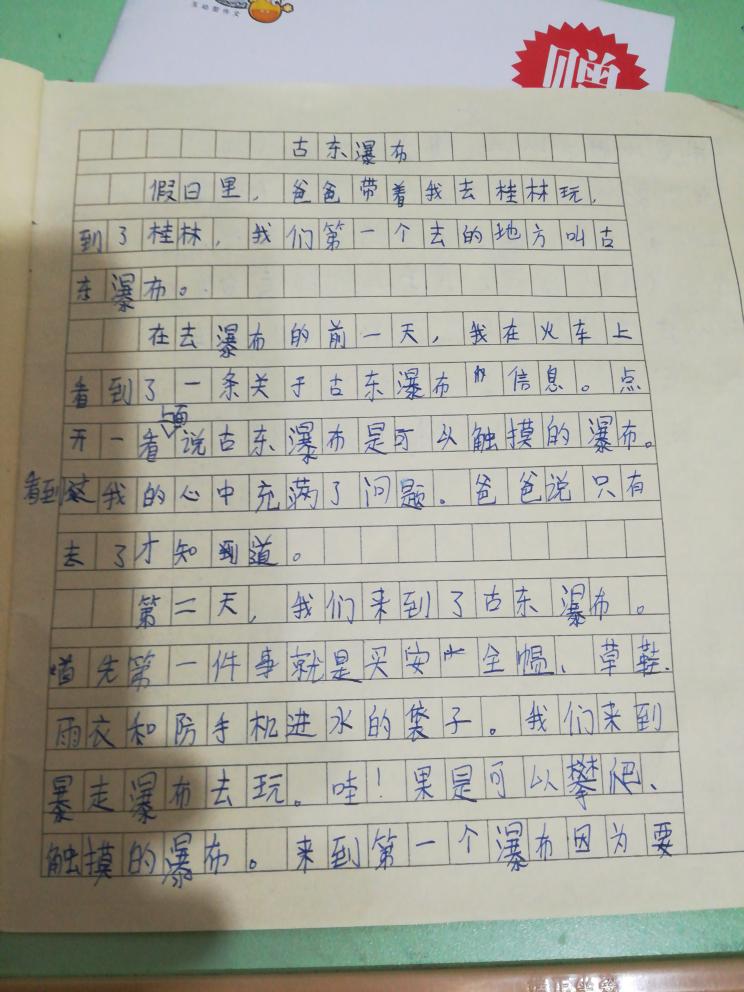 互动型作文
赠
古东瀑布
假日里，爸爸带着我去桂林玩，
到了桂林，我们第一个去的地方叫古
东瀑布。
在去瀑布的前一天，我在火车上
看到了一条关于古东瀑布的信息。点
开一看上面说古东瀑布是可以触摸的瀑布。
看到这我的心中充满了问题。爸爸说只有
去了才知道。
第二天，我们来到了古东瀑布。
首先第一件事就是买安全帽、草鞋、
雨衣和防手机进水的袋子。我们来到
暴走瀑布去玩。哇！果是可以攀爬、
触摸的瀑布。来到第一个瀑布因为要